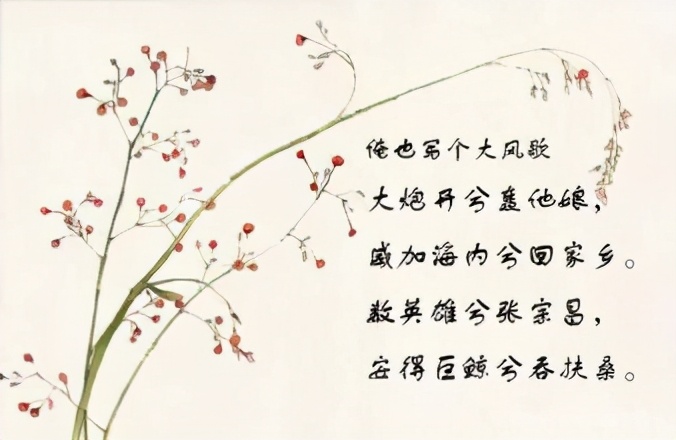 俺也写个大风歌
大炮开兮轰他娘，
威加海内兮回家乡。
数英雄兮张宗昌，
安得巨鲸兮吞扶桑。